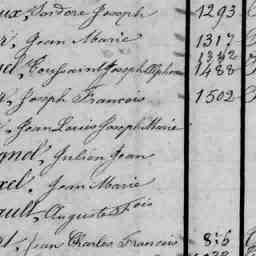 ux, Isidore Joseph 1293
Jean Marie 1317
1342
Toussaint Joseph 1488
Joseph Francois 1502
Jean Louis Joseph Marie
gnol, Julien Jean
xel, Jean Marie
ault, Auguste
t, Jean Charles Francois